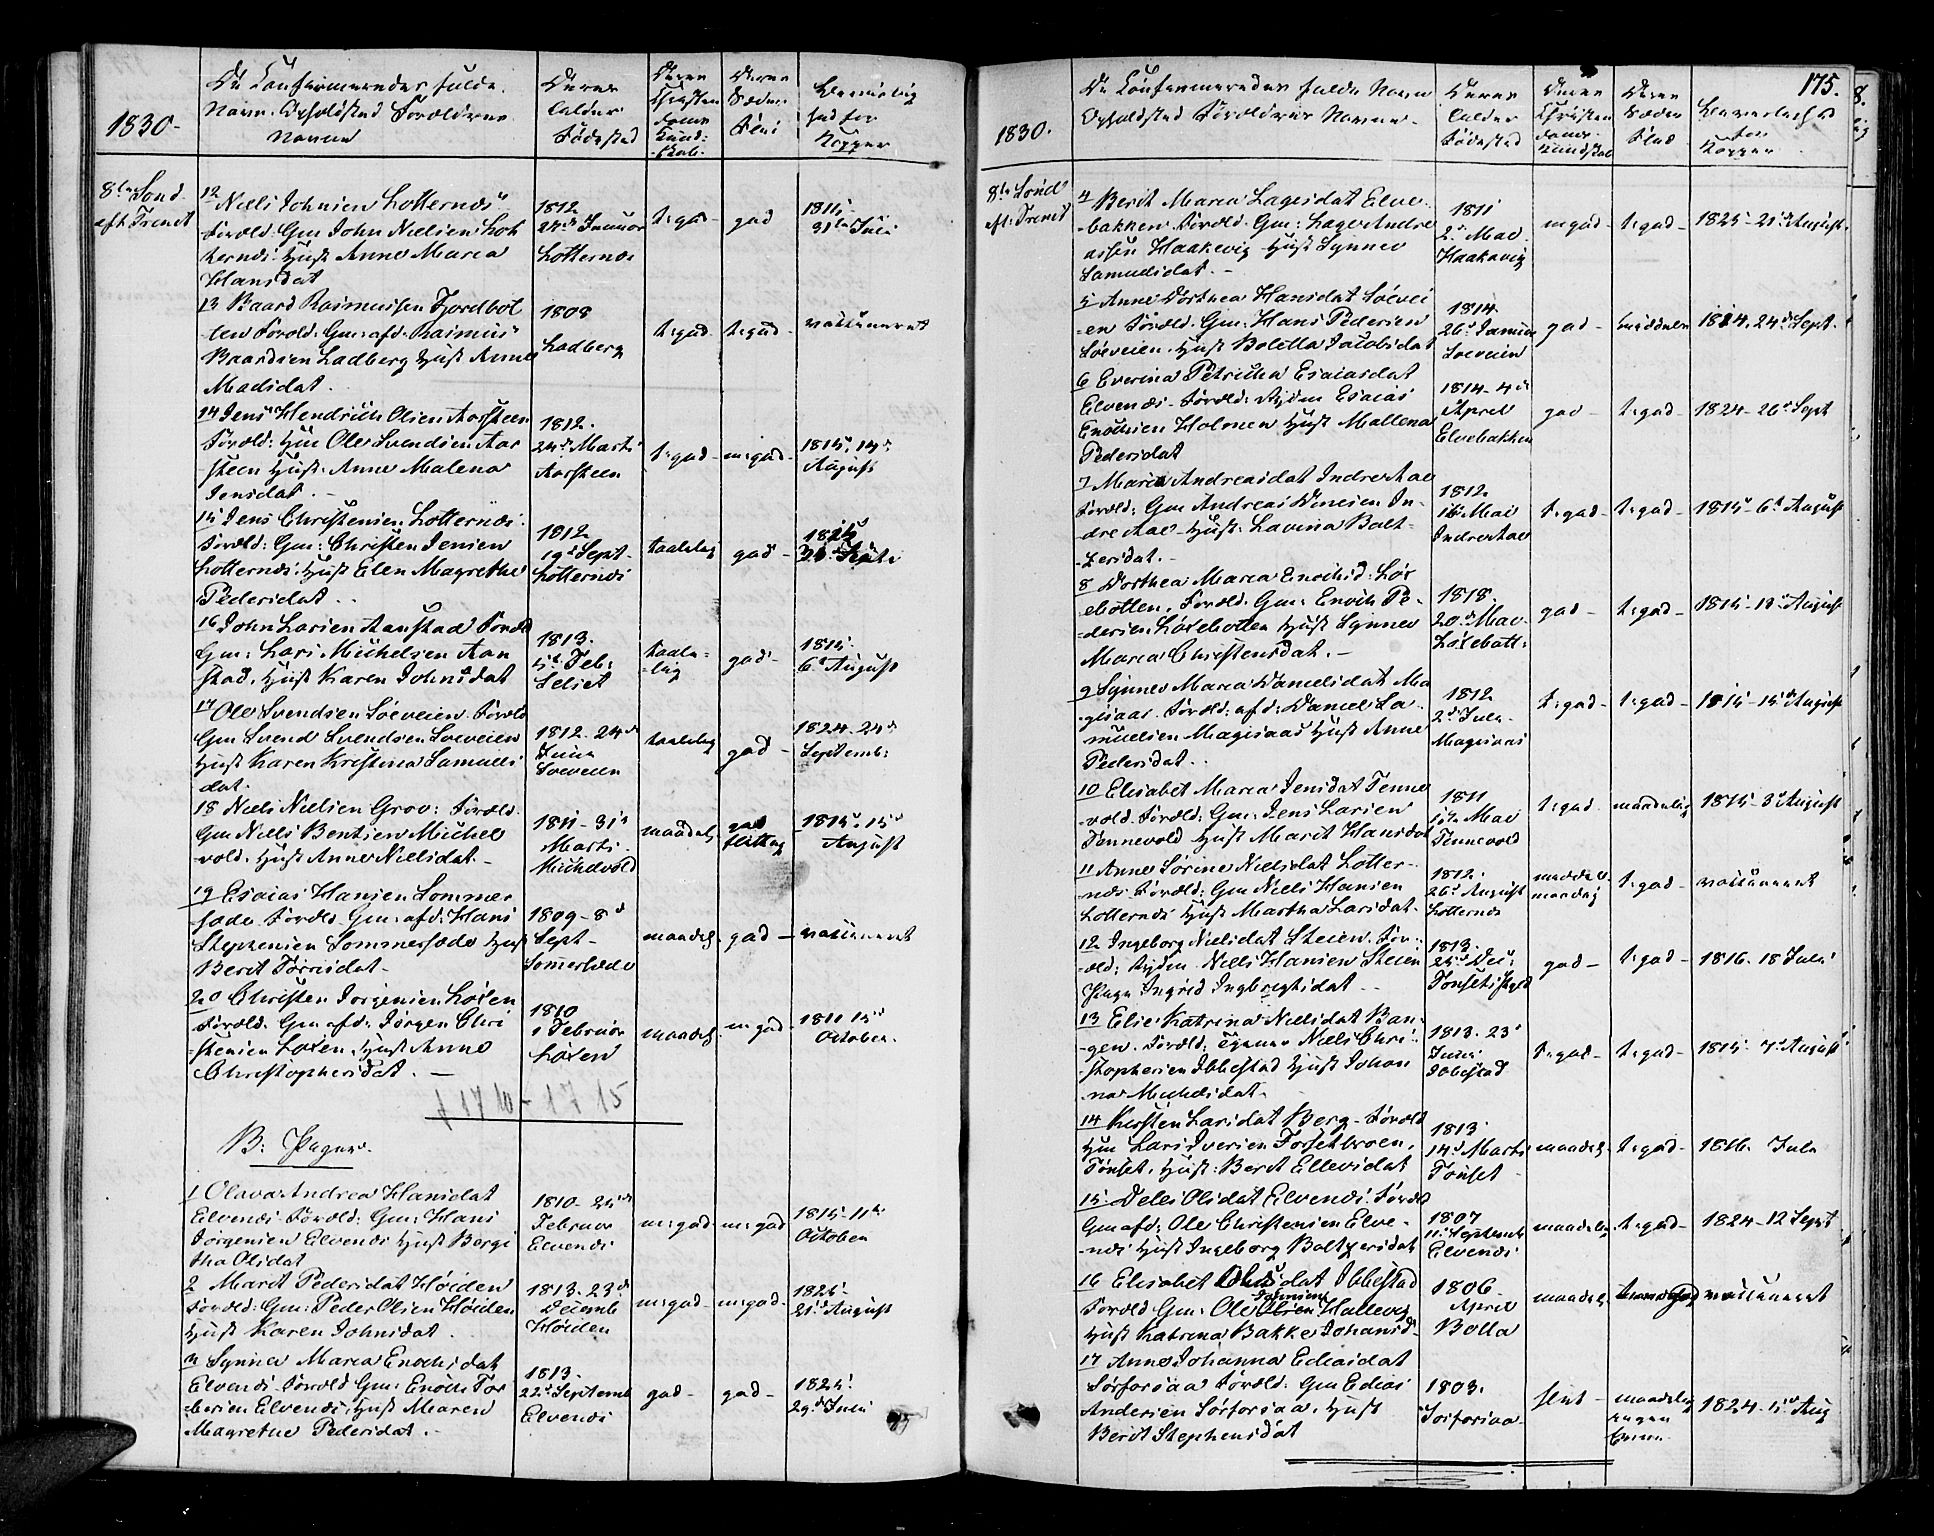 1830.
De Confirmeredes fulde
Navn. Opholdsted Forældrenes
Navne
Deres
Alder
Fødested
8de Sønd
aft. Trenit
12
Niels Johnsen Lotternes
Foræld: Gm John Nielsen Lot
ternes Hust Anne Maria
Hansdat
1812
Januar
Lotternes
t:god
god
1815
31te Juli
13 Baard Rasmussen Fjordbot
ten Foræld: Gm: afd. Rasmus
Baardsen Ladberg Hust Anne
Madsdat.
1808
Ladberg
t:god
t:god
vaccineret
14 Jens Hendrich Olsen Aarsteen
Foræld: Hm Ole Svendsen Aar
steen Hust: Anne Malena
Jensdat.
1812.
24de Marts
Aarsteen
t:god
m:god
1815. 14de
August
15 Jens Christensen Lotternes.
Foræld: Gm: Christen Jensen
Lotternes. Hust Elen Magrethe
Pedersdat.
1812
19de Sept
Lotternes
taalelig
god
16 John Larsen Aanstad Foræld
Gm: Lars Michelsen Aan
stad, Hust Karen Johnsdat
1813.
5te Feb:
Selset
taale-
lig
god
1815.
6te August
17 Ole Svendsen Søeveien. Foræld
Gm Svend Svendsen Søeveien
Hust Karen Kristina Samuels
dat.
1812. 24de
Juni
Søeveien
taalelig
god
1824. 24de
Septemb:
18 Niels Nielsen Grov: Foræld.
Gm Niels Bentsen Michel
vold. Hust Anne Nielsdat.
1811 - 31te
Marts
Michelvold
maadel.
god
flittig
1815. 15de
August
19 Esaias Hansen Sommer
sæde Foræld. Gm: afd: Hans
Stephensen Sommersæde Hust
Berit Torrisdat
1809 - 8de
Sept
Somersæde
maadel.
god
vaccineret
20 Christen Jørgensen Løxen
Foræld. Gm afd: Jørgen Chri
stensen Løxen, Hust Anne
Christophersdat.
1810
1 Februar
Løxen
maadel.
m.god
1811 15de
October.
f 1710 - 1715
B: Piger.
1 Olava Andrea Hansdat
Elvenes. Foræld: Gm: Hans
Jørgensen Elvenes Hust Bergi
tha Olsdat
1810 - 25de
Februar
Elvenes
m:god
m:god
1815 - 11te
October
2 Marit Pedersdat Høiden
Foræld: Gm: Peder Olsen Høiden
Hust Karen Johnsdat.
1813. 23de
Decemb
Høiden
m:god
m:god
1825.
21de August
3 Synnev Maria Enochsdat
Elvenes. Foræld Gm: Enoch Tor
bersen Elvenes. Hust Maren
Magrethe Pedersdat.
1813.
22de Septemb
Elvenes
god
god
1825.
29de Juni
175.
1830.
De Confirmeredes fulde Navn
Opholdsted Forældrenes Navne.
Deres
Alder
Fødested
8de Sønd
eft. Trenit
4 Berit Maria Lagesdat Elve
bakken. Foræld: Gm: Lage Andre
assen Haakevig Hust Synnev
Samuelsdat.
1811
2de Mai
Haakevig
m god
t:god
1825 - 21de August.
5 Anne Dorthea Hansdat Søevei
en Foræld. Gm: Hans Pedersen
Søeveien. Hust Boletta Jacobsdat
1814.
26de Januar
Søeveien
god
1824. 24de Sept.
6 Everina Petricha Esaiasdat
Elvenes. Foræld: Esaias
Enochsen Holonen Hust Mallena
Pedersdat
1814 - 4de
April
Elvebakken
god
t:god
1824 - 26de Sept
7 Maria Andreasdat Indre Aae
Foræld: Gm Andreas In-
dre Aae. Hust: Lavina Balt-
zersdat.
1812
16de Mai
Indre Aae
t.god
t:god
1815 - 6te August
8 Dorthea Maria Enochsd: Løx
ebotten. Foræld. Gm: Enoch Pe-
dersen Løxebotten Hust Synnev
Maria Christensdat.
1818.
20de Mai
Løxebott:
god
t:god
1815 - 18de August
9 Synnev Maria Danielsdat Ma
gesaas. Foræld: afd: Daniel Sa-
muelsen Magesaas Hust Anne
Pedersdat.
1812
2de Jula
Magesaas
t:god
t:god
1815 - 15de August
10 Elisabet Maria Jensdat Tenne
vold. Foræld: Gm: Jens Larsen
Tennevold Hust Marit Hansdat
1811
Mai
Tennevold
t:god
maadelig
1815 - 3de August
11 Anne Sørine Nielsdat Lotter-
nes. Foræld: Gm Niels Hansen
Lotternes Hust Martha Larsdat.
1812.
26de August
Lotternes
t:god
vaccineret
12 Ingeborg Nielsdat Steien. For-
æld: Niels Hansen Steien
Pige Ingrid Ingbrigtsdat
1813.
25de Dec:
god
t:god
1816. 18 Jula
13 Elie Katrina Nielsdat Ban-
gen. Foræld: Niels Chri-
stophersen Ibbestad Hust Johan
na Michelsdat
1813. 23de
Juni
Ibbestad
t:god
t:god
1815 - 7de August
14 Kirsten Larsdat Berg. Foræld
Hm Lars Iversen Fossetbroen,
Tønset. Hust: Berit Ellevsdat
1813.
14de Marts
Tønset
maadel.
t:god
1816. Jula
15. Deles Olsdat Elvenes. Foræld
Gm afd: Ole Christensen Elve-
nes Hust Ingeborg Baltzersdat
1807
11te Septemb
Elvenes
maadelig
t:god
1824 - 12 Sept
16 Elisabet Olesdat Ibbestad
Foræld Gm: Ole Johnsen Hallevig
Hust Katrina Bakke Johansd.
1806.
April
Bolla
maadel.
vaccineret
17 Anne Johanna Ediasdat
Sørforsaa Foræld. Gm Edias
Andersen Sørforsaa. Hust
Berit Stephensdat
1803.
Sørforsaa
slet
maadelig
1824 - 15de Aug